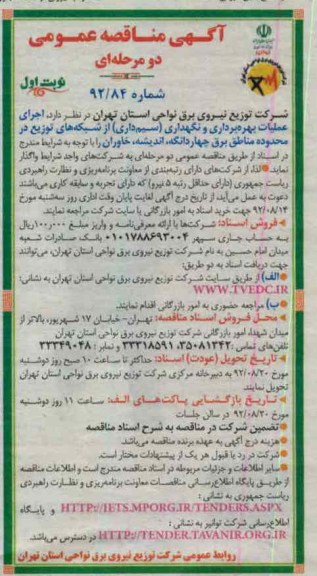 آگهی مناقصه عمومی
دو مرحله‌ای
نوبت اول
شماره ۹۲/۸۴
شرکت توزیع نیروی برق نواحی استان تهران در نظر دارد، اجرای
عملیات بهره‌برداری و نگهداری (سیم‌داری) از شبکه‌های توزیع در
محدوده مناطق برق چهاردانگه، اندیشه، خاوران را با توجه به شرایط مندرج
در اسناد از طریق مناقصه عمومی دو مرحله‌ای به شرکت‌های واجد شرایط واگذار
نماید. لذا، از شرکت‌های دارای رتبه‌بندی از معاونت برنامه‌ریزی و نظارت راهبردی
ریاست جمهوری (دارای حداقل رتبه ۵ نیرو) که دارای تجربه و سابقه کاری می‌باشند
دعوت به عمل می‌آید، از تاریخ درج آگهی لغایت پایان وقت اداری روز سه‌شنبه مورخ
۹۲/۰۸/۱۴ جهت خرید اسناد به امور بازرگانی یا سایت شرکت مراجعه نمایند.
فروش اسناد: شرکت‌ها با ارائه معرفی‌نامه و واریز مبلغ ۱۰۰٫۰۰۰ ریال
به حساب جاری سپهر ۰۱۰۱۷۸۸۶۹۳۰۰۴ بانک صادرات شعبه
میدان امام حسین به نام شرکت توزیع نیروی برق نواحی استان تهران، می‌توانند
جهت دریافت اسناد به دو طریق:
الف) از طریق سایت شرکت توزیع نیروی برق نواحی استان تهران به نشانی:
WWW.TVEDC.IR
ب) مراجعه حضوری به امور بازرگانی اقدام نمایند.
محل فروش اسناد مناقصه: تهران- خیابان ۱۷ شهریور، بالاتر از
میدان شهدا، امور بازرگانی شرکت توزیع نیروی برق نواحی استان تهران
تلفن‌های تماس: ۳۵۰۸۱۳۴۲، ۳۳۳۱۸۵۹۱ و نمابر: ۳۳۳۴۹۰۴۸
تاریخ تحویل (عودت) اسناد: حداکثر تا ساعت ۱۰ صبح روز دوشنبه
مورخ ۹۲/۰۸/۲۰ به دبیرخانه مرکزی شرکت توزیع نیروی برق نواحی استان تهران
تحویل نمایند
تاریخ بازگشایی پاکت‌های الف: ساعت ۱۱ روز دوشنبه
مورخ ۹۲/۰۸/۲۰ در سالن جلسات
تضمین شرکت در مناقصه به شرح اسناد مناقصه
هزینه درج آگهی به عهده برنده مناقصه می‌باشد.
شرکت در رد یا قبول هر یک از پیشنهادات مختار است.
سایر اطلاعات و جزئیات مربوطه در اسناد مناقصه مندرج است و اطلاعات مناقصه
از طریق پایگاه اطلاع‌رسانی مناقصات معاونت برنامه‌ریزی و نظارت راهبردی
ریاست جمهوری به نشانی :
HTTP://IETS.MPORG.IR/TENDERS.ASPX و پایگاه
اطلاع‌رسانی شرکت توانیر به نشانی :
HTTP://TENDER.TAVANIR.ORG.IR در دسترس می‌باشد.
روابط عمومی شرکت توزیع نیروی برق نواحی استان تهران